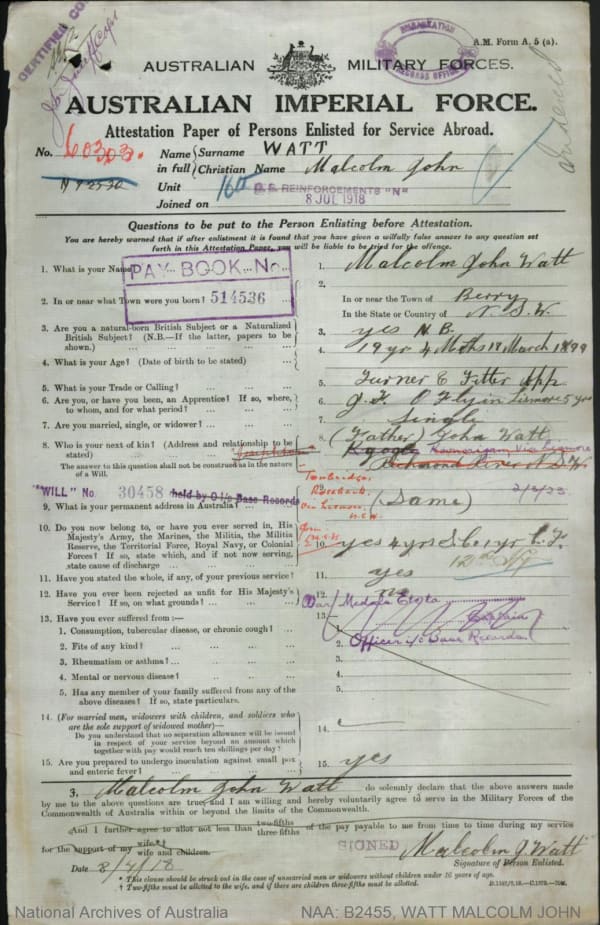 CERTIFIED COPY
A.M. Form A. 5 (a).
AUSTRALIAN MILITARY FORCES.
AUSTRALIAN IMPERIAL FORCE.
Attestation Paper of Persons Enlisted for Service Abroad.
No. 60303.
Name in full
Surname WATT
Christian Name Malcolm John
Unit 16th G.S. REINFORCEMENTS "N"
Joined on 8 JUL 1918
Questions to be put to the Person Enlisting before Attestation.
You are hereby warned that if after enlistment it is found that you have given a wilfully false answer to any question set
forth in this Attestation Paper, you will be liable to be tried for the offence.
1. What is your Name?
1. Malcolm John Watt
PAY-BOOK No.
514536
2. In or near what Town were you born?
2.
In or near the Town of Berry
In the State or Country of N.S.W.
3. Are you a natural-born British Subject or a Naturalized
British Subject? (N.B.—If the latter, papers to be
shown.)
3. yes N.B.
4. What is your Age? (Date of birth to be stated)
4. 19 yr 4 Mths 18 March 1899
5. What is your Trade or Calling?
5. Turner & Fitter App
6. Are you, or have you been, an Apprentice? If so, where,
to whom, and for what period?
6. Lismore 5 yrs
7. Are you married, single, or widower?
7. Single
8. Who is your next of kin? (Address and relationship to be
stated)
8. (Father) John Watt
Kyogle
Richmond River N.S.W.
The answer to this question shall not be construed as in the nature
of a Will.
"WILL" No. 30458 held by O I/c Base Records
9. What is your permanent address in Australia?
(Same)
10. Do you now belong to, or have you ever served in, His
Majesty's Army, the Marines, the Militia, the Militia
Reserve, the Territorial Force, Royal Navy, or Colonial
Forces? If so, state which, and if not now serving,
state cause of discharge
10. yes 4 yrs S.C. 1 yr C.F.
11. Have you stated the whole, if any, of your previous service?
11. yes
12. Have you ever been rejected as unfit for His Majesty's
Service? If so, on what grounds?
12. no
War Medals Etc
Captain
Officer i/c Base Records
13. Have you ever suffered from :—
1. Consumption, tubercular disease, or chronic cough?
2. Fits of any kind?
3. Rheumatism or asthma?
4. Mental or nervous disease?
5. Has any member of your family suffered from any of the
above diseases? If so, state particulars.
14. (For married men, widowers with children, and soldiers who
are the sole support of widowed mother)—
Do you understand that no separation allowance will be issued
in respect of your service beyond an amount which
together with pay would reach ten shillings per day?
14.
15. Are you prepared to undergo inoculation against small pox
and enteric fever?
15. yes
I, Malcolm John Watt do solemnly declare that the above answers made
by me to the above questions are true, and I am willing and hereby voluntarily agree to serve in the Military Forces of the
Commonwealth of Australia within or beyond the limits of the Commonwealth.
And I further agree to allot not less than two-fifths three fifths of the pay payable to me from time to time during my service
for the support of my wife*† wife and children.
SIGNED
Malcolm J. Watt
Date 8/7/18
Signature of Person Enlisted.
* This clause should be struck out in the case of unmarried men or widowers without children under 16 years of age.
† Two-fifths must be allotted to the wife, and if there are children three-fifths must be allotted.
National Archives of Australia
NAA: B2455, WATT MALCOLM JOHN